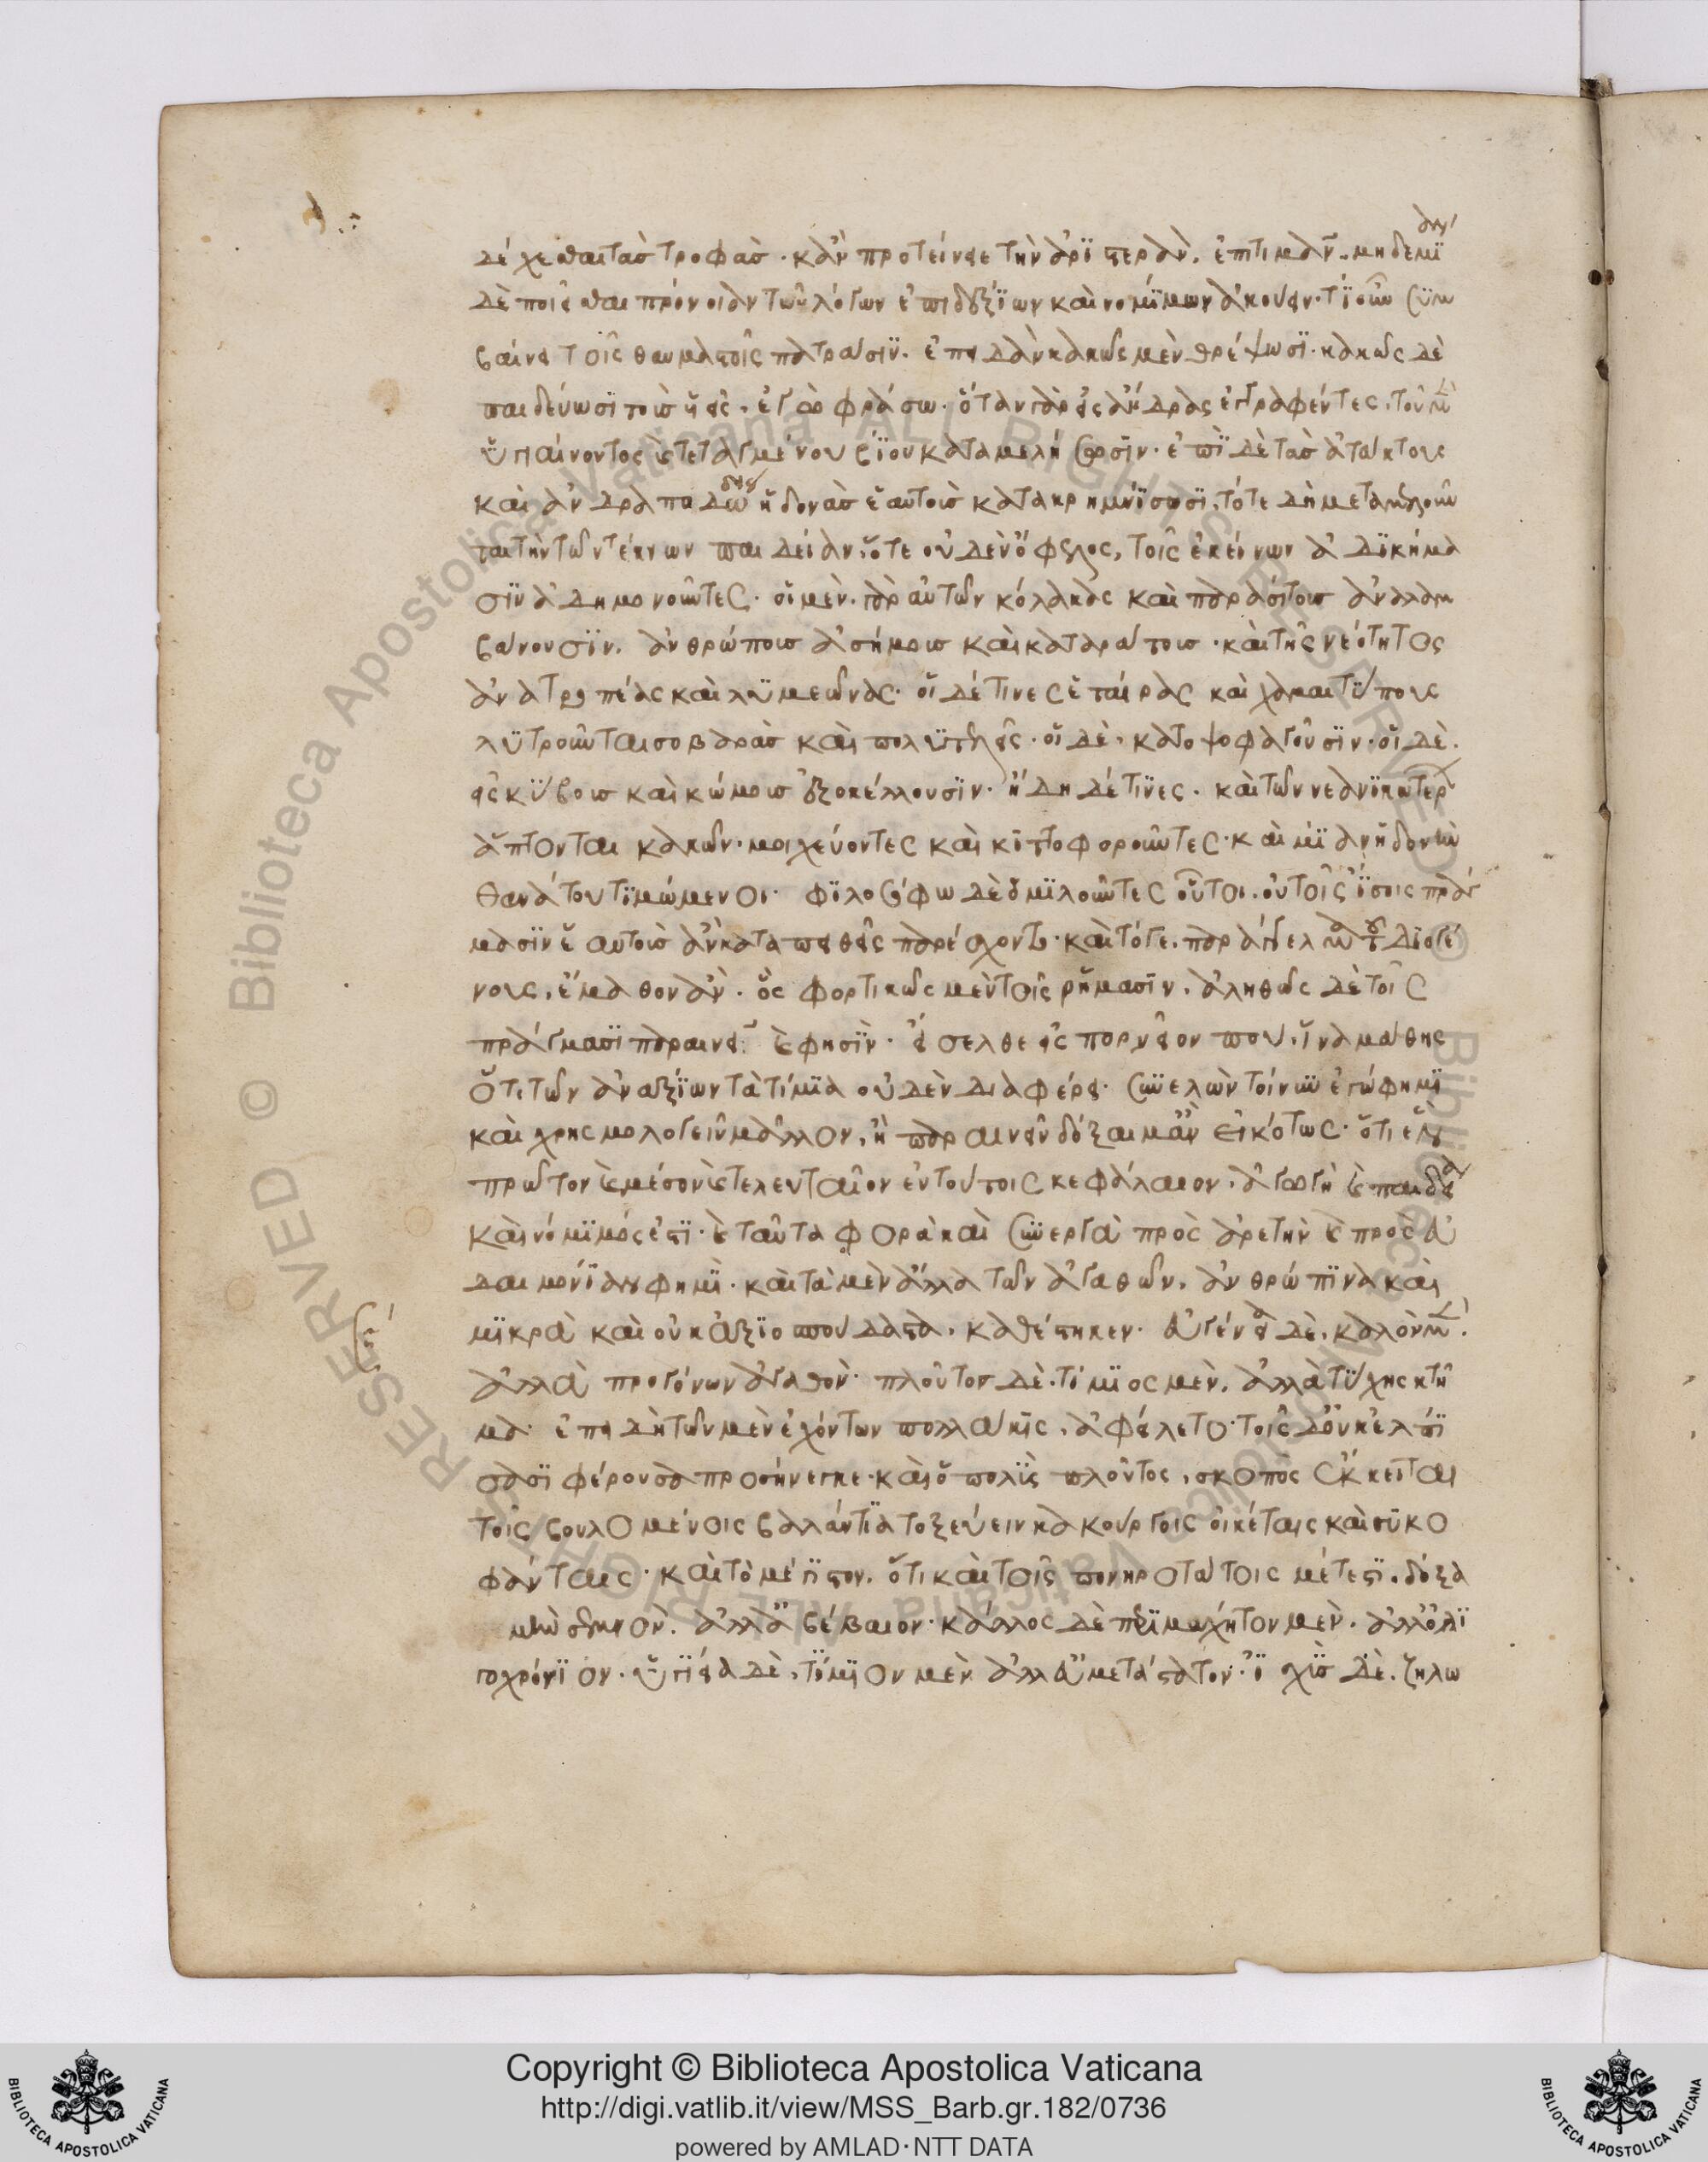 δέχεσθαι τὰς τροφὰς· κἂν προτείνῃ τὴν ἀριστερὰν, ἐπιτιμᾶν· μηδεμίαν
δὲ ποιεῖσθαι πρόνοιαν τῶν λόγων ἐπιδεξίων καὶ νομίμων ἀκούειν· τί οὖν συμ
βαίνει τοῖς θαυμαστοῖς πατράσιν. ἐπειδὰν κακῶς μὲν θρέψωσι· κακῶς δὲ
παιδεύωσι τοὺς υἱεῖς. ἐγὼ φράσω. ὅταν γὰρ εἰς ἄνδρας ἐγγραφέντες, τοῦ μὲν
ὑγιαίνοντος καὶ τεταγμένου βίου καταμελήσωσιν· ἐπὶ δὲ τὰς ἀτάκτους
καὶ ἀνδραποδώδεις ἡδονὰς ἑαυτοὺς κατακρημνίσωσι, τότε δὴ μεταμελοῦν
ται τὴν τῶν τέκνων παιδείαν, ὅτε οὐδὲν ὄφελος, τοῖς ἐκείνων ἀδικήμα
σιν ἀδημονοῦντες. οἱ μὲν γὰρ αὐτῶν κόλακας καὶ παρασίτους ἀναλαμ
βάνουσιν, ἀνθρώπους ἀσήμους καὶ καταράτους· καὶ τῆς νεότητος
ἀνατροπέας καὶ λυμεῶνας· οἱ δέ τινες ἑταίρας καὶ χαμαιτύπους
λυτροῦνται σοβαρὰς καὶ πολυτελεῖς· οἱ δὲ κατοψοφαγοῦσιν· οἱ δὲ
εἰς κύβους καὶ κώμους ἐξοκέλλουσιν· ἤδη δέ τινες καὶ τῶν νεανικωτέρων
ἅπτονται κακῶν· μοιχεύοντες καὶ κιττοφοροῦντες· καὶ μίαν ἡδονὴν
θανάτου τιμώμενοι· φιλοσόφῳ δὲ ὁμιλοῦντες οὗτοι, οὐ τοῖς ἴσοις πράγ
μασιν ἑαυτοὺς ἂν καταπειθεῖς παρέσχοντο· καὶ τό γε παράγγελμα τοῦ Διογέ
νους, ἔμαθον ἄν. ὃς φορτικῶς μὲν τοῖς ῥήμασιν, ἀληθῶς δὲ τοῖς
πράγμασι παραινεῖ καὶ φησὶν· εἴσελθε εἰς πορνεῖόν που, ἵνα μάθῃς
ὅτι τῶν ἀναξίων τὰ τίμια οὐδὲν διαφέρει· συνελὼν τοίνυν ἐγώ φημι
καὶ χρησμολογεῖν μᾶλλον, ἢ παραινεῖν δόξαιμ' ἂν εἰκότως· ὅτι ἓν
πρῶτον καὶ μέσον καὶ τελευταῖον ἐν τούτοις κεφάλαιον, ἀγωγὴ καὶ παιδεία
καὶ νόμιμός ἐστι· καὶ ταῦτα φορὰ καὶ συνεργὰ πρὸς ἀρετὴν καὶ πρὸς εὐ
δαιμονίαν φημὶ· καὶ τὰ μὲν ἄλλα τῶν ἀγαθῶν, ἀνθρώπινα καὶ
μικρὰ καὶ οὐκ ἀξιοσπούδαστα, καθέστηκεν· εὐγένεια δὲ, καλὸν μὲν.
ἀλλὰ προγόνων ἀγαθὸν· πλοῦτος δὲ τίμιος μὲν, ἀλλὰ τύχης κτῆ
μα· ἐπειδὴ τῶν μὲν ἐχόντων πολλάκις, ἀφείλετο· τοῖς δ' οὐκ ἐλπί
σασι φέρουσα προσήνεγκε· καὶ ὁ πολὺς πλοῦτος, σκοπὸς ἔκκειται
τοῖς βουλομένοις βαλάντια τοξεύειν κακούργοις οἰκέταις καὶ συκο
φάνταις· καὶ τὸ μέγιστον, ὅτι καὶ τοῖς πονηροτάτοις μέτεστι. δόξα
μὴν σεμνὸν. ἀλλ' ἀβέβαιον· κάλλος δὲ περιμάχητον μὲν, ἀλλ' ὀλι
γοχρόνιον· ὑγίεια δὲ, τίμιον μὲν ἀλλ' εὐμετάστατον· ἰσχὺς δὲ, ζηλω